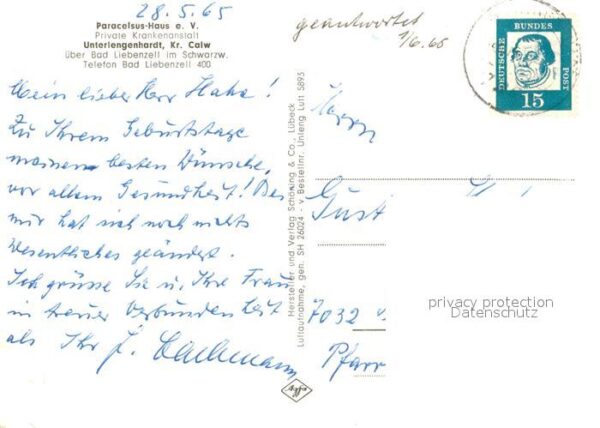 28.5.65
Paracelsus-Haus e. V.
Private Krankenanstalt
Unterlengenhardt, Kr. Calw
über Bad Liebenzell im Schwarzw.
Telefon Bad Liebenzell 400
Mein lieber Herr
Zu Ihrem Geburtstage
meinen besten Wünsche,
vor allem Gesundheit! Bei
mir hat sich noch nichts
Wesentliches geändert.
Ich grüsse Sie u. Ihre Frau
in treuer Verbundenheit
als Ihr J.
Hersteller und Verlag Schöning & Co., Lübeck
Luftaufnahme, gen. SH 26024 - v. Bestellnr. Unleng Luft 5895
Agfa
geantwortet
1/6.65
DEUTSCHE
BUNDES
POST
15
Herrn
Gust
7032
Pfarr
privacy protection
Datenschutz